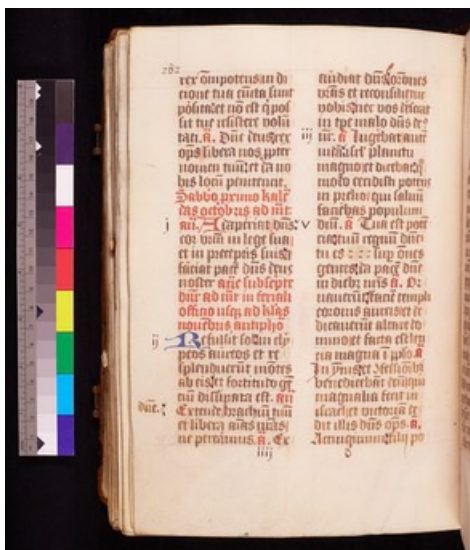 282
rex om̄ipotens an di
cione tua cūcta sunt
posita et nō est q̄ pos
sit tue resistere volū
tati. a. Dn̄e deus rex
libera nos ꝓpter
nomen tuū et da no
bis locū penitencie.
Sabbo primo kalē
das octobris ad
j
Adaperiat dn̄s
cor vr̄m in lege sua
et in preceptis suis et
faciat pacē dn̄s deus
noster
officio usq̄ ad kl̄as
nouēbris
ij
Refulsit sol in cly
peos aureos et re
splenduerūt mōtes
ab eis et fortitudo gē
ciū dissipata est. an
Extende brachiū tuū
et libera aīas
ne pereamus. a. Ex
iiij
audiat dn̄s or̄ones
vr̄as et reconsilietur
vobis nec vos deserat
in tp̄e malo dn̄s deꝰ
iij
vr̄. a Lugebat aūt
iudā isrl̄ planctu
magno et dicebat q̄
mō cecidisti potens
in prelio qui saluū
faciebas populum
v
dn̄i. a Tua est potē
cia tuū regnū dn̄e
tu es sup om̄es
gentes da pacē dn̄e
in diebꝫ nr̄is a. Or
nauerūt faciē templi
coronis aureis et de
dicauerūt altare do
mino et facta est leti
cia magna ī pplo. a
In ymnis et cōfessionibꝫ
benedicebāt dn̄m qui
magnalia fecit in
israel et victoriā de
dit illis dn̄s